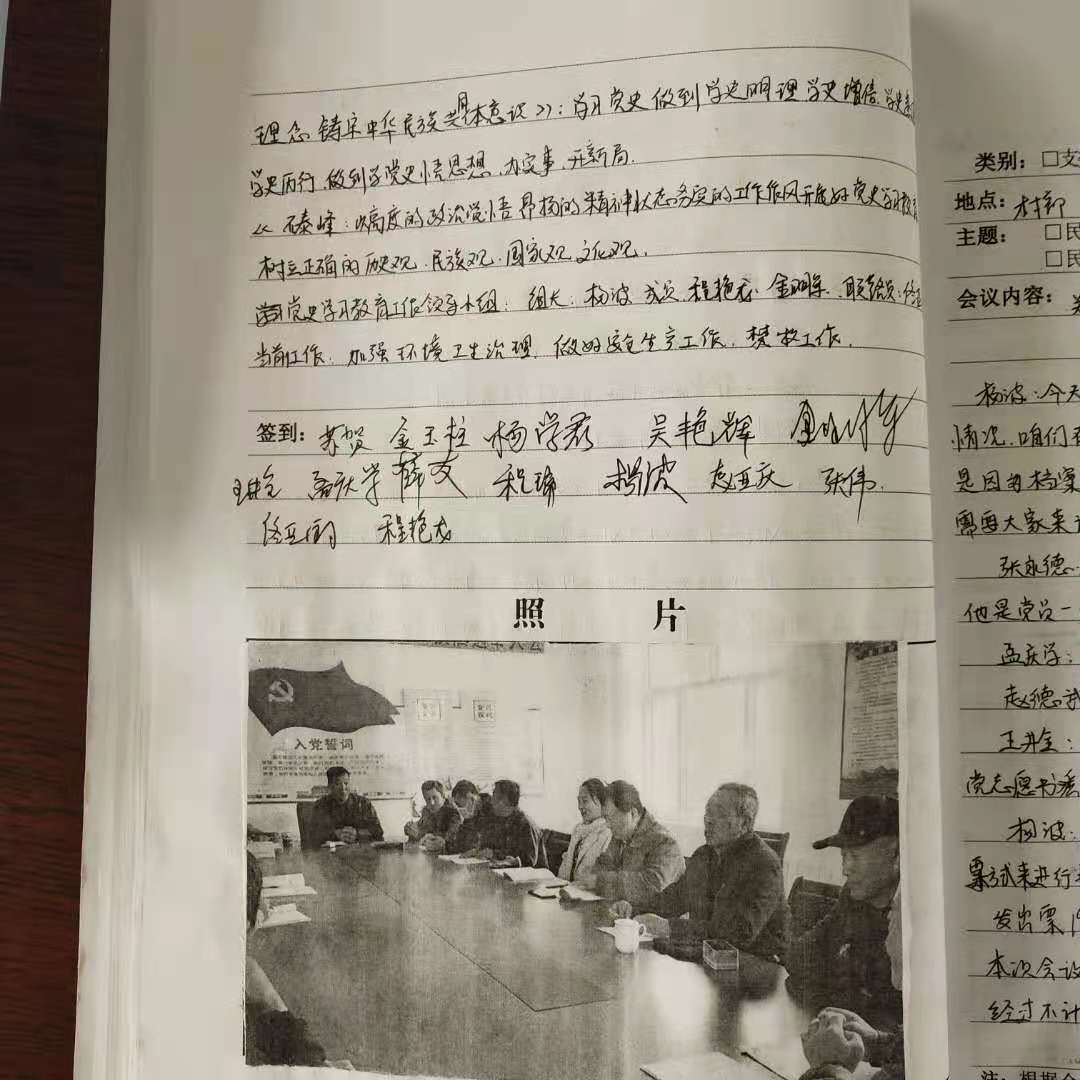 理念 铸牢中华民族共同体意识》：学习党史做到学史明理 学史增信、学史
学史力行 做到学党史悟思想、办实事、开新局.
《 石泰峰：以高度的政治觉悟 昂扬的精神状态务实的工作作风开展好党史学习教育
树立正确的历史观、民族观、国家观、文化观.
党史学习教育工作领导小组：组长：杨波 成员、程艳龙 金明军、联络员：佟
当前工作：加强环境卫生治理、做好安全生产工作、禁牧工作.
签到：苏贺 金玉柱 杨学君 吴艳辉
王井全 孟庆学 薛文 程瑞 杨波 赵亚庆 张伟
程艳龙
照 片
入党誓词
类别：□支
地点：村部
主题：□民
□民
会议内容：
杨波：今天
情况，咱们
是因为档案
需要大家来
张永德
他是党员一
孟庆学：
赵德
王井全：
党志愿书
杨波：
票方式来进行
发出票
本次会议
经过不计
注：根据